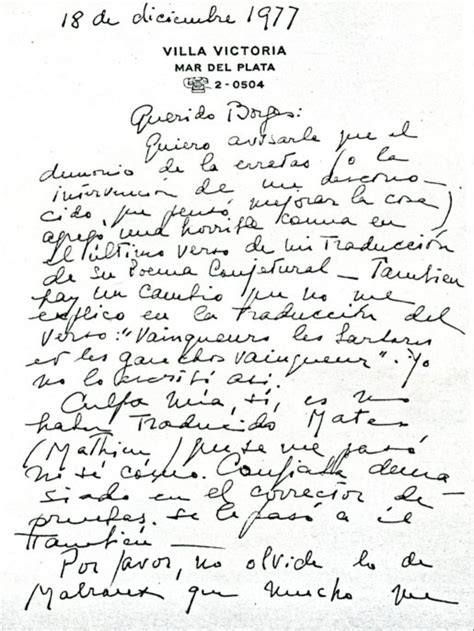 18 de diciembre 1977
VILLA VICTORIA
MAR DEL PLATA
☎ 2-0504
Querido Borges:
Quiero avisarle que el
demonio de la erratas (o la
intervención de un descono-
cido, que pensó mejorar la cosa)
agregó una horrible comma en
el último verso de mi Traducción
de su Poema Conjetural — Tambien
hay un cambio que no me
explico en la traducción del
verso: "Vainqueurs les
et les gauchos vainqueur". Yo
no lo escribí asi.
Culpa mía, sí, es no
haber Traducido Mate
(Mathieu) que se me pasó
no sé cómo. Confiaba dema
siado en el corrector de
pruebas. se le pasó a él
Tambien —
Por favor, no olvide lo de
Malraux que mucho me